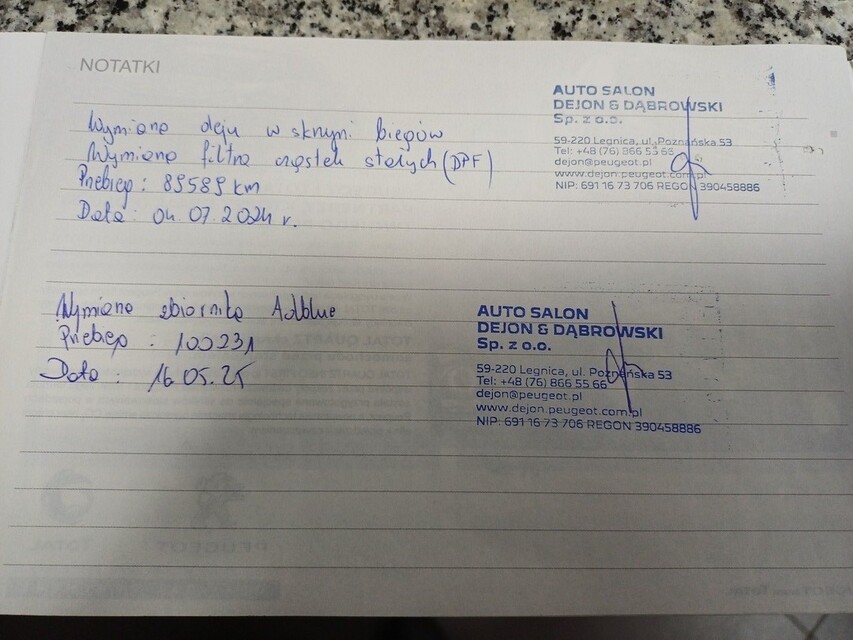 NOTATKI
AUTO SALON
DEJON & DĄBROWSKI
Sp. z o.o.
59-220 Legnica, ul. Poznańska 53
Tel: +48 (76) 866 55 66
dejon@peugeot.pl
www.dejon.peugeot.com.pl
NIP: 691 16 73 706 REGON 390458886
Wymiana oleju w skrzyni biegów
Wymiana filtra cząstek stałych (DPF)
Przebieg: 89589 km
Data: 04.07.2024 r.
AUTO SALON
DEJON & DĄBROWSKI
Sp. z o.o.
59-220 Legnica, ul. Poznańska 53
Tel: +48 (76) 866 55 66
dejon@peugeot.pl
www.dejon.peugeot.com.pl
NIP: 691 16 73 706 REGON 390458886
Wymiana zbiornika Adblue
Przebieg : 100231
Data : 16.05.25